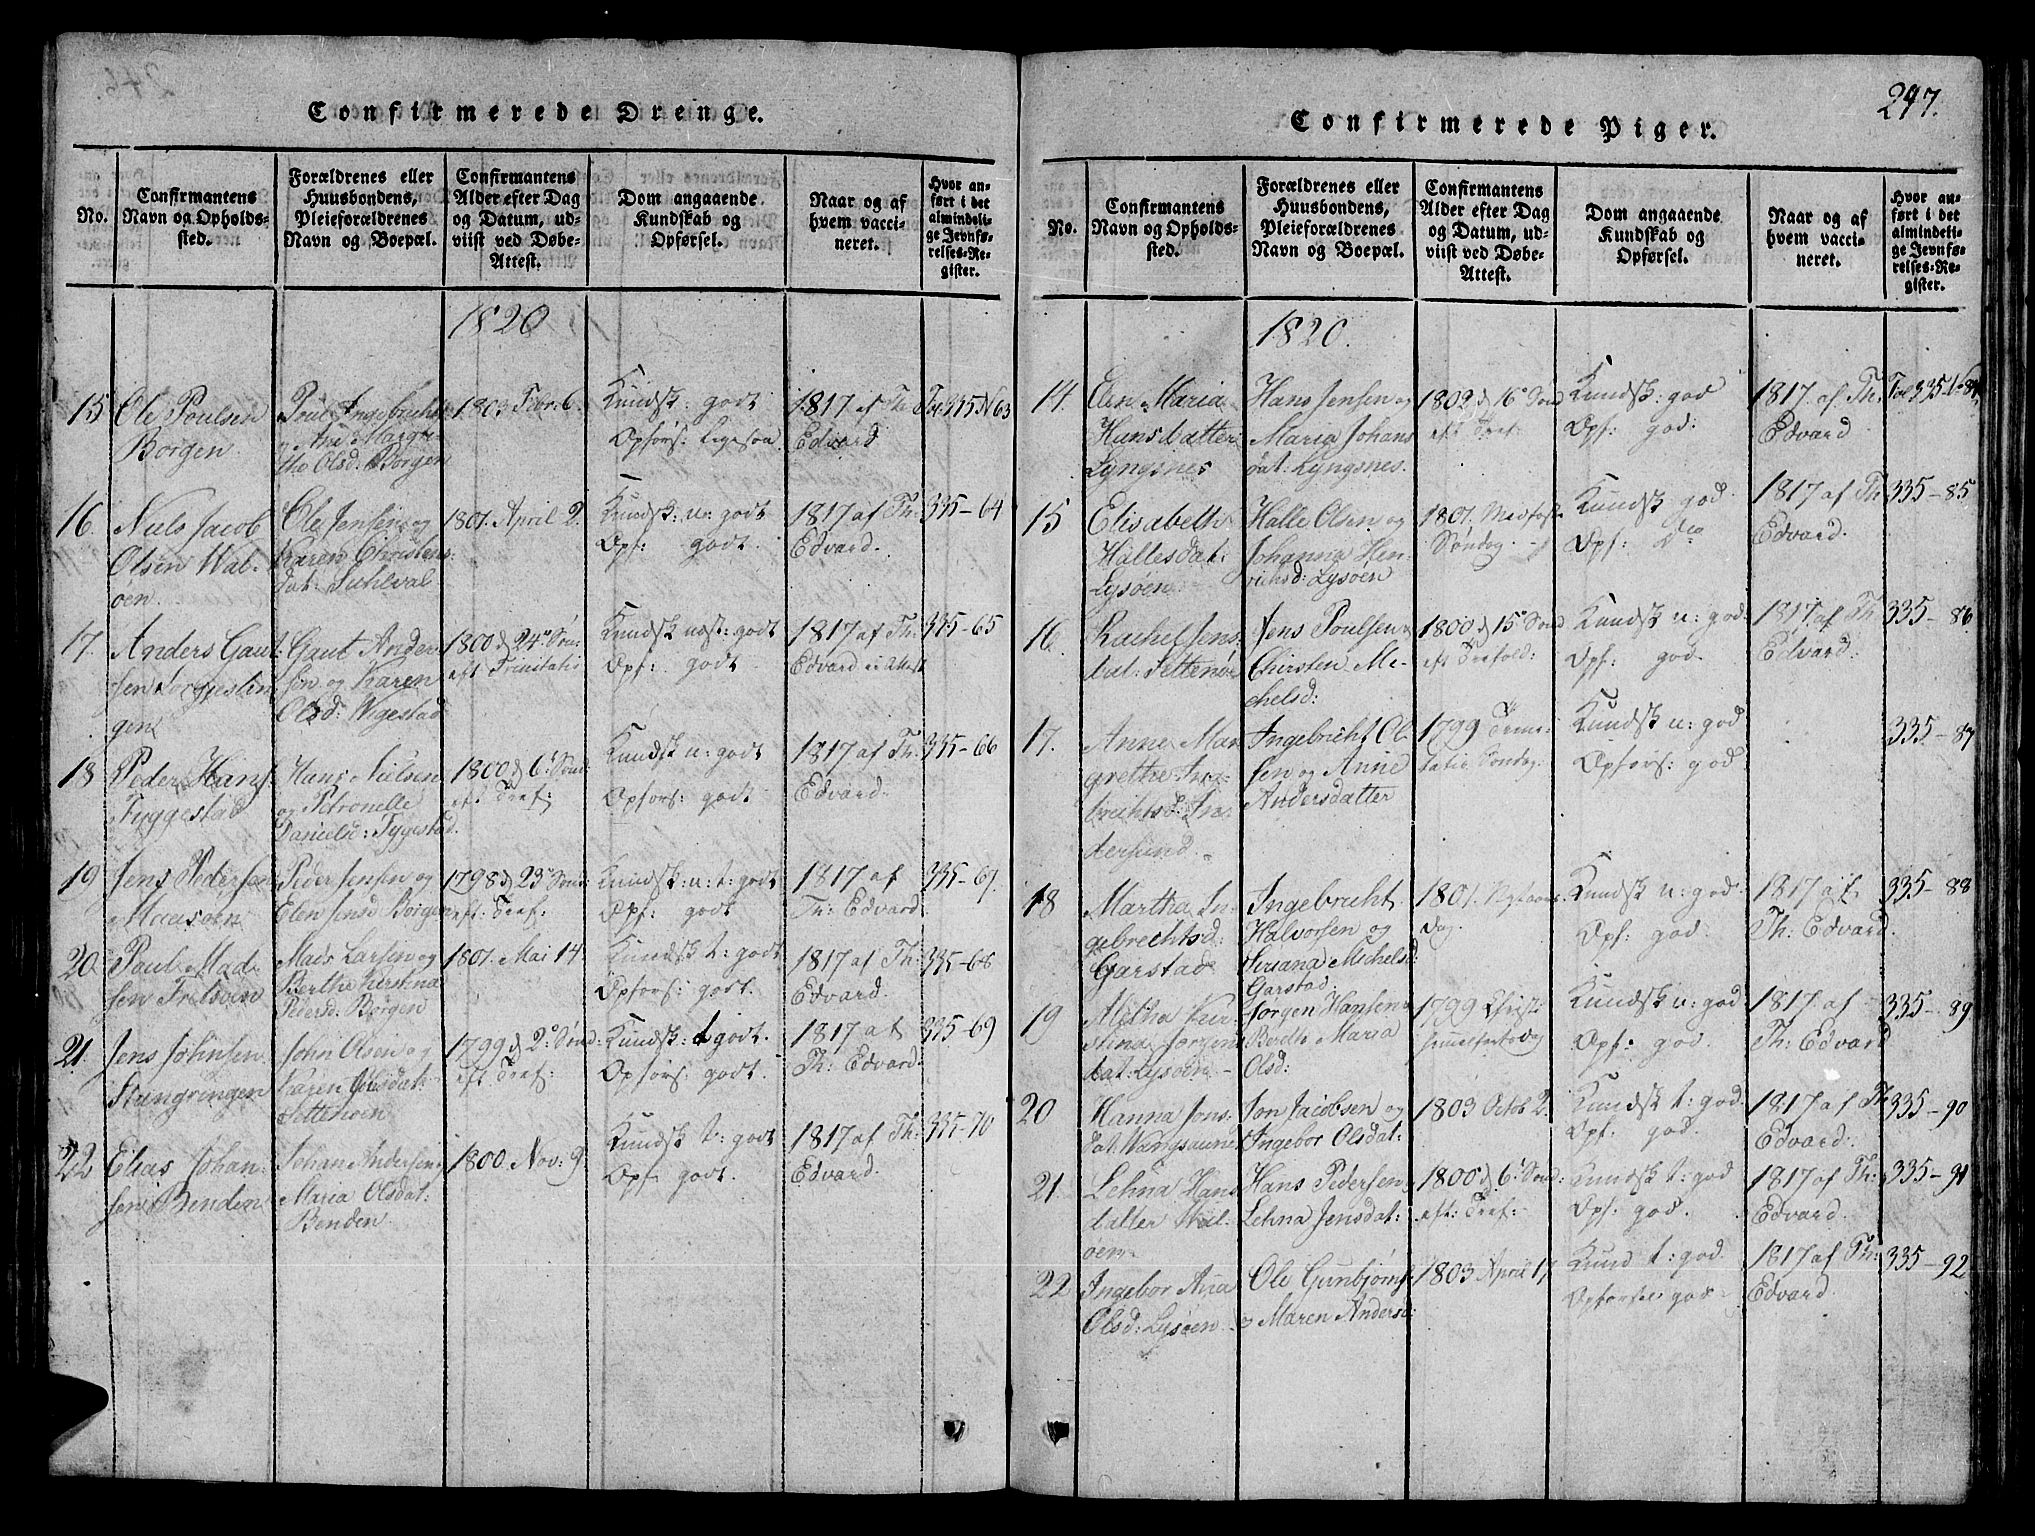 247.
Confirmerede Drenge.
No.
Confirmantens
Navn og Opholds-
sted.
Forældrenes eller
Huusbondens,
Pleieforældrenes
Navn og Boepæl.
Confirmantens
Alder efter Dag
og Datum, ud-
viist ved Døbe-
Attest.
Dom angaaende
Kundskab og
Opførsel.
Naar og af
hvem vacci-
neret.
Hvor an-
ført i det
almindeli-
ge Jevnfø-
relses-Re-
gister.
1820
15
Ole Poulsen
Borgen
Poul Ingebrichts
og Ane Margre-
the Olsd: Borgen
1803 Febr: 6.
Kundsk: godt
Opførs: ligesaa
1817 af Th:
Edvard
Fol 335 N 63
16.
Niels Jacob
Olsen Wal-
øen.
Ole Jensen og
Karen Christens
dat.
1801. April 2.
Kundsk: n: godt
Opf: godt
1817 af Th:
Edvard.
335-64
17.
Anders Gaut-
sen
gen
Gaut Ander
sen og Karen
Olsd: Wigestad
1800 d 24de Sønd
eft Trinitatis
Kundsk næst: godt
Opf: godt
1817 af Th:
Edvard
335-65
18
Peder Hans
Tyggestad
Hans Nielsen
og Petronelle
Danielsd: Tygestad.
1800 d 6te Sønd:
eft Tref:
Kundsk n: godt
Opførs: godt
1817 af Th:
Edvard.
335-66
19
Jens Pedersen
Maasøen
Peder Jensen og
Elen Jensd Borgen
1798 d 23de Sønd:
eft: Tref:
Kundsk: n: t: godt
Opf: godt
1817 af
Th: Edvard.
335-67.
20
Paul Mad
sen
Mads Larsen og
Berthe Kirstina
Pedersd: Borgen
1801. Mai 14.
Kundsk t: godt
Opførs: godt.
1817 af Th:
Edvard.
335-68
21.
Jens Johnsen
Stangringen
John Olsen og
Karen Johsdat:
Settenøen
1799 d 2de Sønd:
eft Tref:
Kundsk: t godt.
Opførs: godt.
1817 af
Th: Edvard.
335-69
22
Elias Johan-
sen Benden
Johan Andersen og
Maria Olsdat:
Benden
1800. Nov: 9
Kundsk t: godt
Opf godt.
1817 af Th:
Edvard.
335-70
Confirmerede Piger.
No.
Confirmantens
Navn og Opholds-
sted.
Forældrenes eller
Huusbondens,
Pleieforældrenes
Navn og Boepæl.
Confirmantens
Alder efter Dag
og Datum, ud-
viist ved Døbe-
Attest.
Dom angaaende
Kundskab og
Opførsel.
Naar og af
hvem vacci-
neret.
Hvor an-
ført i det
almindeli-
ge Jevnfø-
relses-Re-
gister.
1820.
14.
Elen Maria
Hansdatter
Lyngsnes
Hans Jensen og
Maria Johans
dat: Lyngsnes.
1802 d 16de Sønd
eft Tref:
Kundsk: god
Opf: god:
1817. af Th:
Edvard
Fol 335 N 84
15
Elisabeth
Hallesdat:
Lysøen
Halle Olsen og
Johanna Hen-
richsd: Lysøen
1801. Midfaste
Søndag.
Kundsk god
Opf: do
1817 af Th:
Edvard.
335-85
16.
Rachel Jens
dat: Settenøe
Jens Poulsen og
Chirsten Mi-
chelsd:
1800 d 15de Sønd
eft Trefold:
Kundsk n: god
Opf: god.
1817. af Th
Edvard:
335-86.
17.
Anne Mar
grethe Ing-
brichtsd: In-
dersund.
Ingebricht Ol-
sen og Anne
Andersdatter
1799 Trini-
tatis Søndag.
Kundsk n: god
Opførs: god
335-87
18
Martha In-
gebrechtsd:
Garstad
Ingebricht
Halvorsen og
Siriana Michelsd
Garstad.
1801. Nytaars
dag.
Kundsk n: god.
Opf: god.
1817 af
Th: Edvard.
335-88
19
Alitha Kir
stina Jørgens
dat: Lysøen
Jørgen Hansen og
Berethe Maria
Olsd:
1799 Christi
himmelfartsdag
Kundsk n: god
Opf: god.
1817. af
Th: Edvard
335-89
20
Hanna Jons
dat. Wangsaune
Jon Jacobsen og
Ingebor Olsdat:
1803 Octob 2.
Kundsk t: god.
Opf: god.
1817 af Th
Edvard.
335-90
21.
Lehna Hans
datter Wal-
øen
Hans Pedersen og
Lehna Jensdat:
1800 d 6te Sønd:
eft: Tref:
Kundsk t: god
Opf: god.
1817 af Th:
Edvard.
335-91
22
Ingebor Anna
Olsd: Lysøen
Ole Gunbjørns
og Maren Andersd:
1803 April 17
Kund t: god
Opførsel god
1817 af Th:
Edvard.
335-92